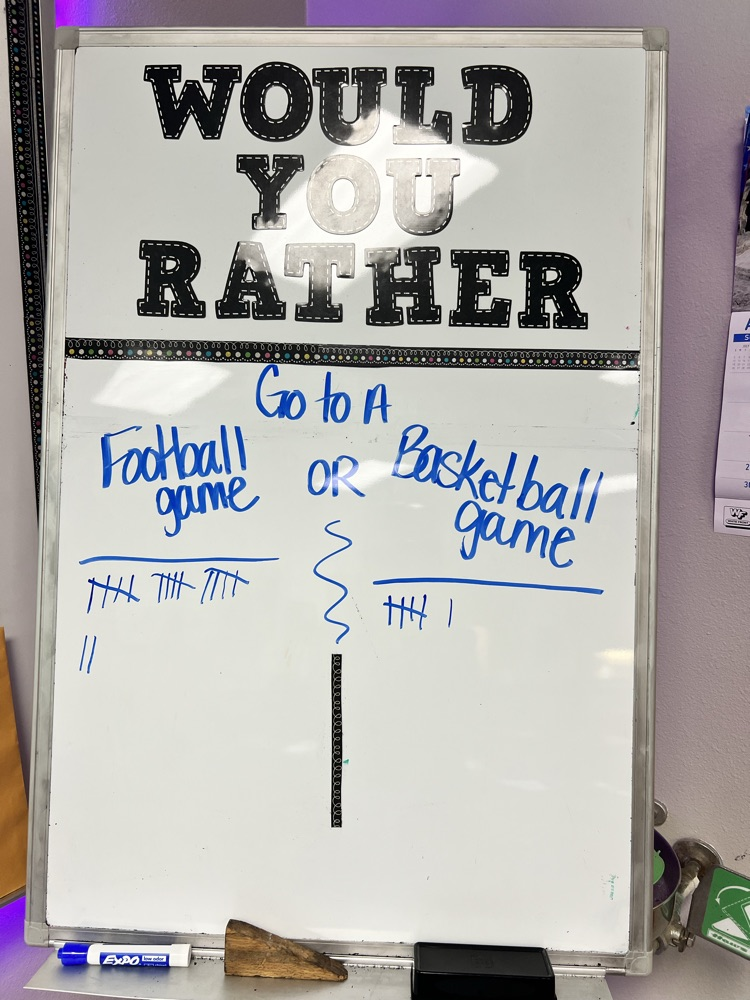 WOULD
YOU
RATHER
Go to A
Football
game
OR
Basketball
game
EXPO low odor